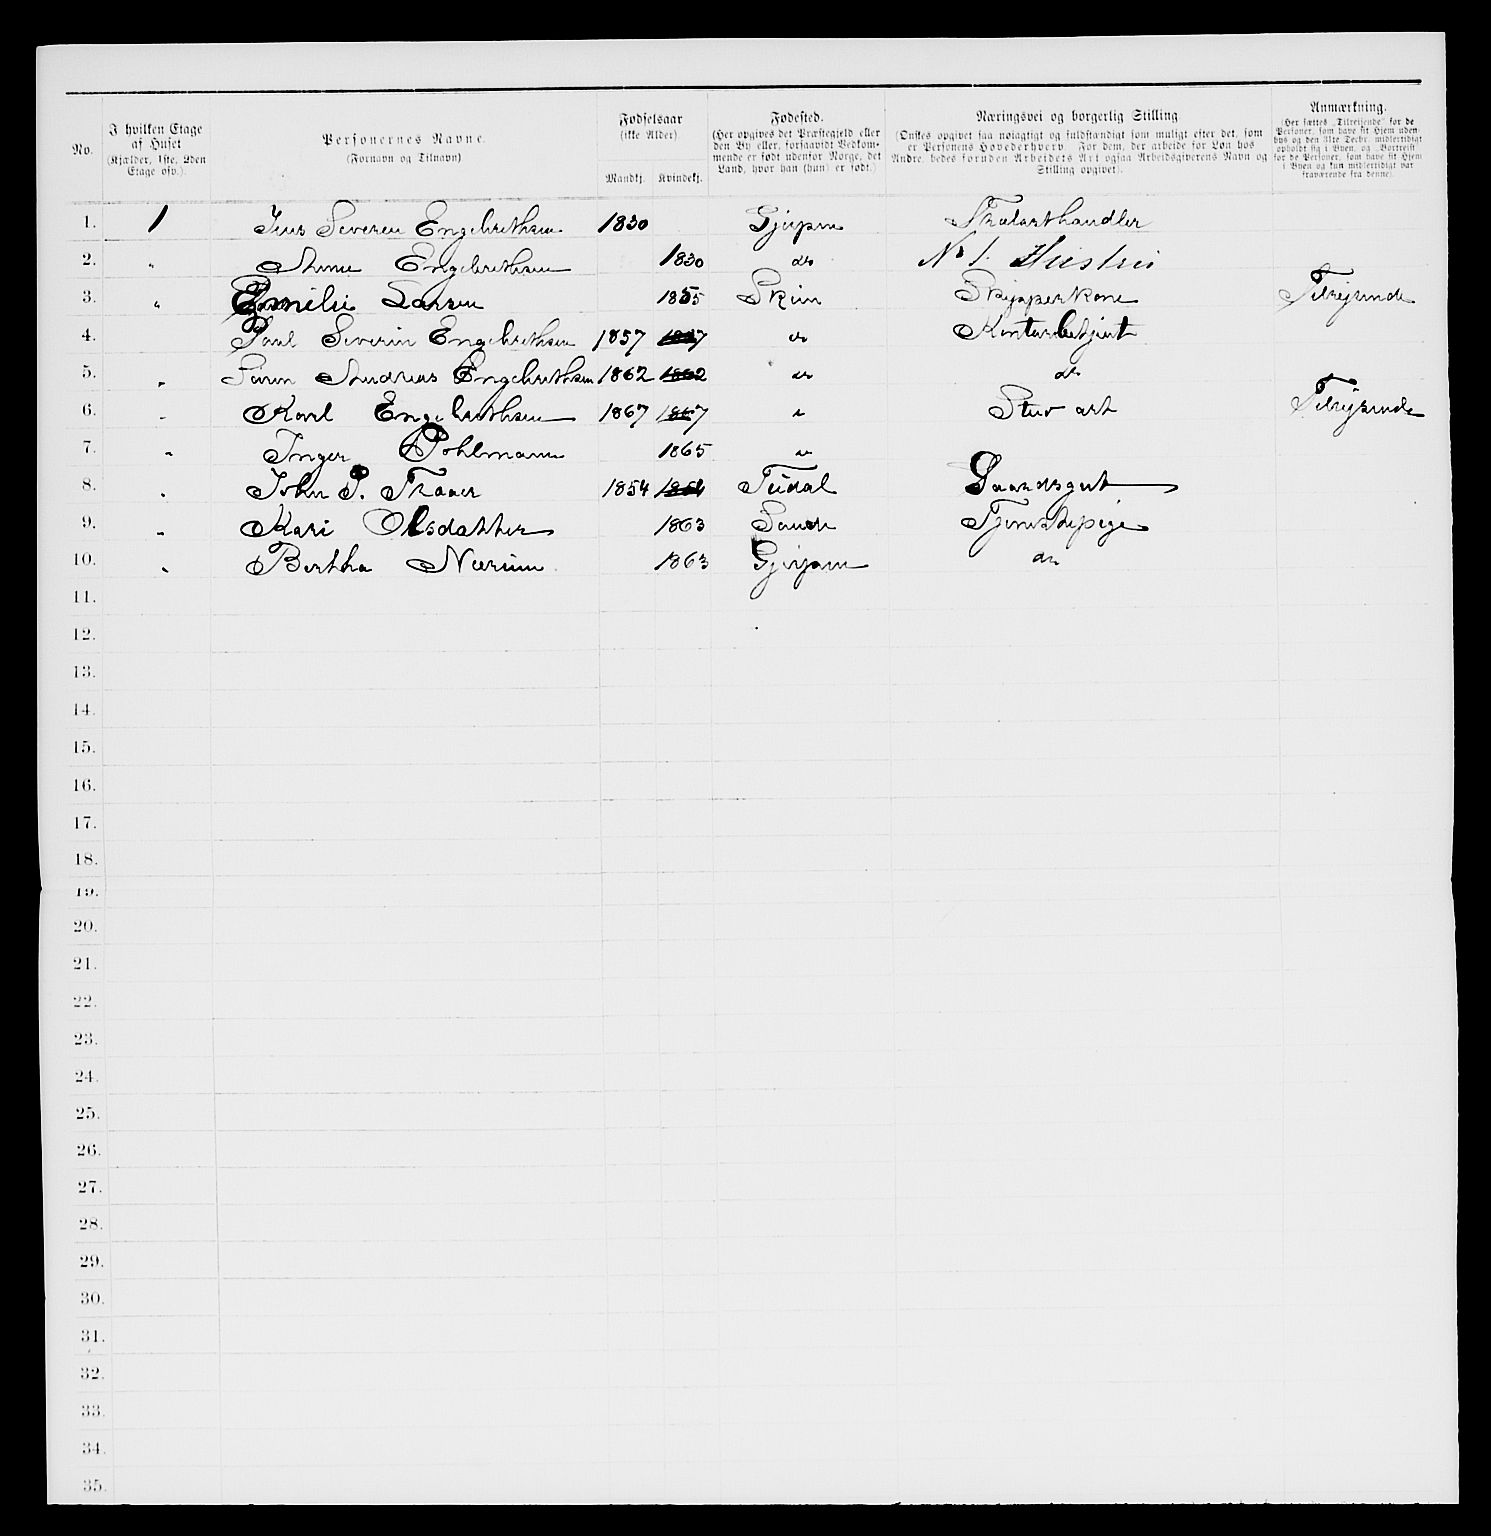 No.
I hvilken Etage af Huset (Kjælder, 1ste, 2den Etage osv.).
Personernes Navne. (Fornavn og Tilnavn)
Fødselsaar (ikke Alder)
Mandkj. Kvindekj.
Fødested. (Her opgives det Præstegjeld eller den By eller, forsaavidt Vedkommende er født udenfor Norge, det Land, hvor han (hun) er født.)
Næringsvei og borgerlig Stilling (Ønskes opgivet saa nøiagtigt og fuldstændigt som muligt efter det, som er Personens Hovederhverv. For dem, der arbeide for Løn hos Andre, bedes foruden Arbeidets Art ogsaa Arbeidsgiverens Navn og Stilling opgivet).
Anmærkning. (Her sættes „Tilreisende" for de Personer, som have sit Hjem udenbys og den 31te Decbr. midlertidigt opholdt sig i Byen, og „Bortreist" for de Personer, som have sit Hjem i Byen og kun midlertidigt var fraværende fra denne).
1. 1 Jens Severen Engebrethsen 1830 Gjerpen Trælasthandler
2. " Anne Engebrethsen 1830 do No 1. Hustru
3. " Emilie Larsen 1855 Skien Skipperkone Tilreisende
4. Paul Severin Engebrethsen 1857 1857 do Kontorbetjent
5. " Søren Andreas Engebrethsen 1862 1862 do do
6. " Karl Engebrethsen 1867 1867 " Stuvart Tilreisende
7. " Inger Pohlmann 1865 "
8. " John P. Traaer 1854 1854 Tudal Gaardsgut
9. " Kari Olsdatter 1863 Saude Tjenestepige
10. " Berthe Nærum 1863 Gjerpen do
11.
12.
13.
14.
15.
16.
17.
18.
19.
20.
21.
22.
23.
24.
25.
26.
27.
28.
29.
30.
31.
32.
33.
34.
35.